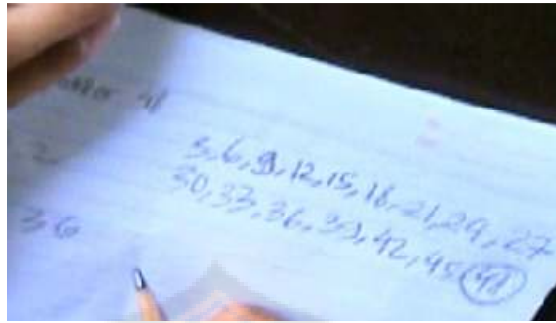 3, 6, 9, 12, 15, 18, 21, 24, 27
30, 33, 36, 39, 42, 45
3, 6